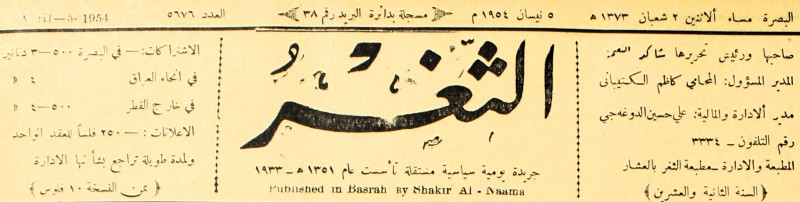 البصرة مساء ألاثنين ٢ شعبان ١٣٧٣ ھ
٥ نيسان ١٩٥٤ م
﴿ مسجلة بدائرة البريد رقم ٣٨ ﴾
العدد ٥٦٧٦
5-1954
صاحبها ورئيس تحريرها شاكر النعمه
المدير المسؤول: المحامي كاظم الكتيباني
مدير ألادارة والمالية: علي حسين الدوغه جي
رقم التلفون ـ ٣٣٣٤
المطبعة والادارة ـ مطبعة الثغر بالعشار
﴿ السنة الثانية والعشرين ﴾
الثغر
جريدة يومية سياسية مستقلة تأسست عام ١٣٥١ ھ ـ ١٩٣٣
Published in Basrah By Shakir Al - Naama
الاشتراكات: ـ في البصرة ٥٠٠ـ٣ دنانير
في أنحاء العراق ٤ »
في خارج القطر ٥٠٠ـ٤ »
الاعلانات : ـ ٢٥٠ فلساً للعقد الواحد
ولمدة طويلة تراجع بشأنها الادارة
﴿ ثمن النسخة ١٠ فلوس ﴾